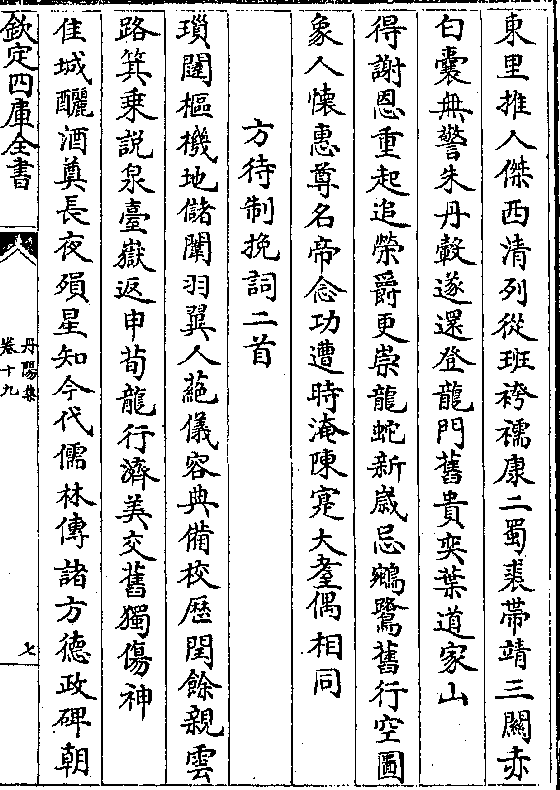 東里推人傑西清列從班袴襦康二蜀裘帶靖三關赤
白囊無警朱丹轂遂還登龍門舊貴奕葉道家山
得謝恩重起追榮爵更崇龍蛇新歲忌鵷鷺舊行空圖
象人懷惠尊名帝念功遭時淹陳寔大耋偶相同
方待制挽詞二首
瑣闥樞機地儲闈羽翼人蕝儀容典備校歷閏餘親雲
路箕乘説泉臺嶽返申荀龍行濟美交舊獨傷神
佳城釃酒奠長夜殞星知今代儒林傳諸方德政碑朝
欽定四庫全書
丹陽集
卷十九
七